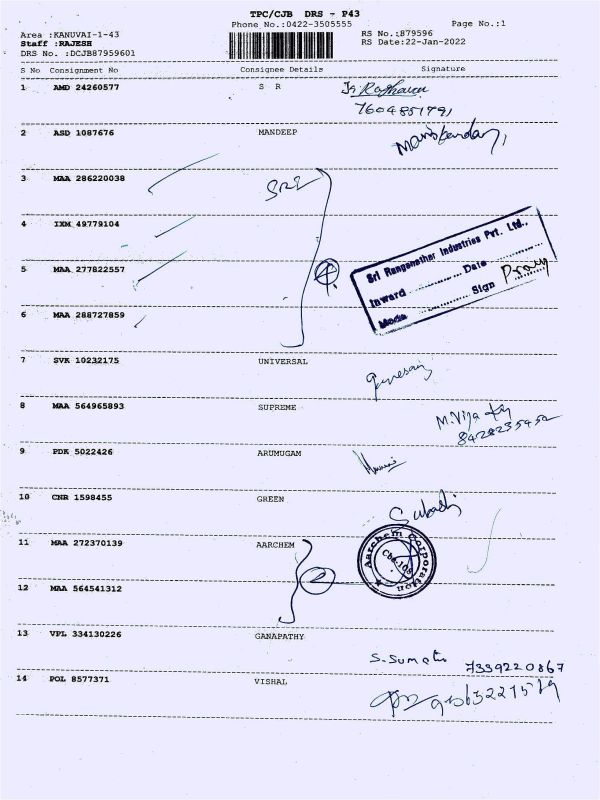 TPC/CJB DRS - P43
Phone No.:0422-3505555
Page No.:1
Area :KANUVAI-1-43
RS No.:879596
Staff :RAJESH
RS Date:22-Jan-2022
DRS No. :DCJB87959601
S No Consignment No Consignee Details Signature
1 AMD 24260577 S R
7604851791
2 ASD 1087676 MANDEEP
3 MAA 286220038 SRI
4 IXM 49779104
Sri Ranganathar Industries Pvt. Ltd.,
5 MAA 277822557
Inward Date
Mode Sign
6 MAA 288727859
4
7 SVK 10232175 UNIVERSAL
8 MAA 564965893 SUPREME
M.Vija
9 PDK 5022426 ARUMUGAM
10 CNR 1598455 GREEN
11 MAA 272370139 AARCHEM
2
Aarchem Corporation
CBE-108
12 MAA 564541312
13 VPL 334130226 GANAPATHY
S.Sumathi 7339220867
14 POL 8577371 VISHAL